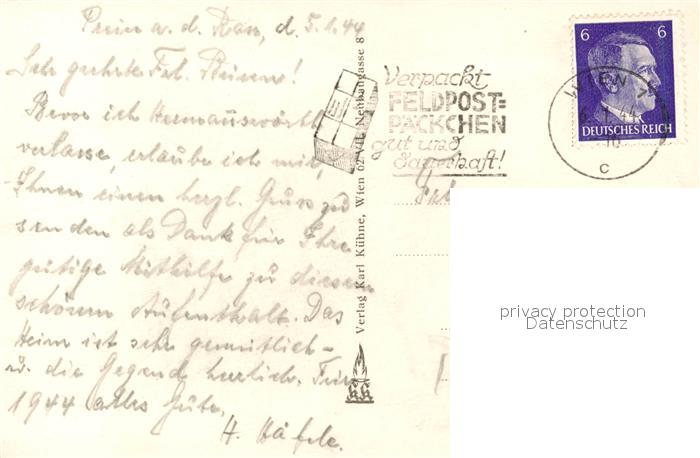 Prein a. d. Rax, d. 5.1.44
Sehr geehrte Frl.
Bevor ich
verlasse, erlaube ich mir,
Ihnen einen herzl. Gruss zu
senden als Dank für Ihre
gütige Mithilfe zu diesem
schönen Aufenthalt. Das
Heim ist sehr gemütlich -
u. die Gegend herrlich. Für
1944 alles Gute.
H. Häfele.
Verlag Karl Kühne, Wien 62 VII. Neubaugasse 8
KK
Verpackt
FELDPOST=
PÄCKCHEN
gut und
dauerhaft!
6 6
DEUTSCHES REICH
WIEN
c
privacy protection
Datenschutz